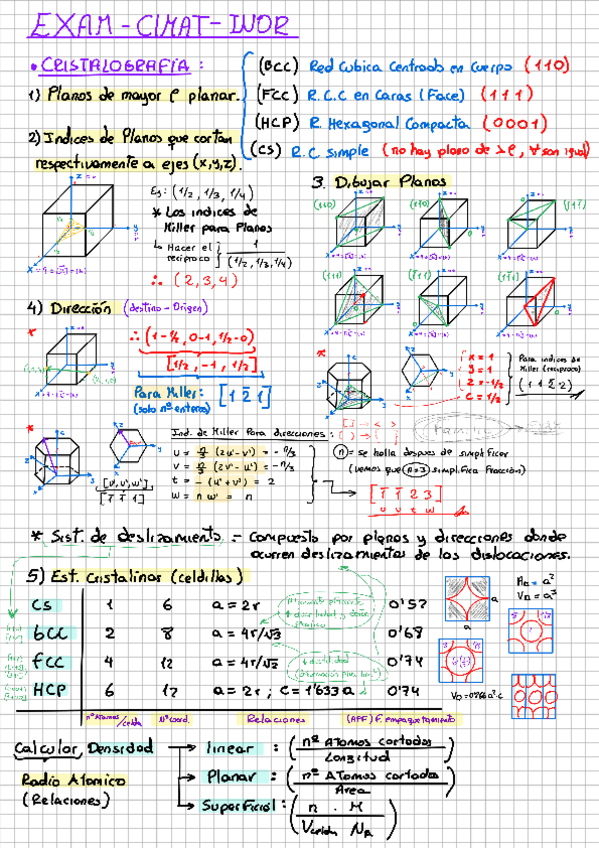 EXAM - CIMAT - INOR
• CRISTALOGRAFÍA :
(BCC) Red Cubica Centrada en Cuerpo (110)
1) Planos de mayor ρ planar.
(FCC) R.C.C en Caras (Face) (111)
(HCP) R. Hexagonal Compacta (0001)
2) Indices de Planos que cortan
respectivamente a ejes (x,y,z).
(CS) R.C simple (no hay plano de >ρ, ∀ son igual)
Ej: (1/2, 1/3, 1/4)
* Los indices de
Miller para Planos
↳ Hacer el
reciproco } 1/(1/2, 1/3, 1/4)
∴ (2,3,4)
3. Dibujar Planos
4) Dirección (destino - Origen)
∴ (1-1/2, 0-1, 1/2-0)
[1/2, -1, 1/2]
Para Miller: [1 2̄ 1]
(solo nº enteros)
x = 1
y = 1
z = -1/2
c = 1/2
Para indices de
Miller (reciproco)
(1 1 2̄ 2)
Ind. de Miller Para direcciones:
u = n/3 (2u' - v') = -n/3
v = n/3 (2v' - u') = -n/3
t = - (u' + v') = 2
w = n w' = n
[u', v', w']
[1̄ 1̄ 1]
(n) = se halla despues de simplificar
(vemos que n=3 simplifica fracción)
[1̄ 1̄ 2 3]
u v t w
* Sist. de deslizamiento = Compuesto por planos y direcciones donde
ocurren deslizamientos de las dislocaciones.
5) Est. Cristalinas (celdillas)
CS 1 6 a = 2r 0'52
bCC 2 8 a = 4r/√3 0'68
fCC 4 12 a = 4r/√2 0'74
HCP 6 12 a = 2r ; C = 1'633 a 0'74
nº Atomos/celda Nº coord. Relaciones (APF) F. empaquetamiento
Calcular Densidad → linear : (nº Atomos cortados / Longitud)
Radio Atomico
(Relaciones)
→ Planar : (nº Atomos cortados / Area)
→ Superficial : (n . M / Vcelda NA)